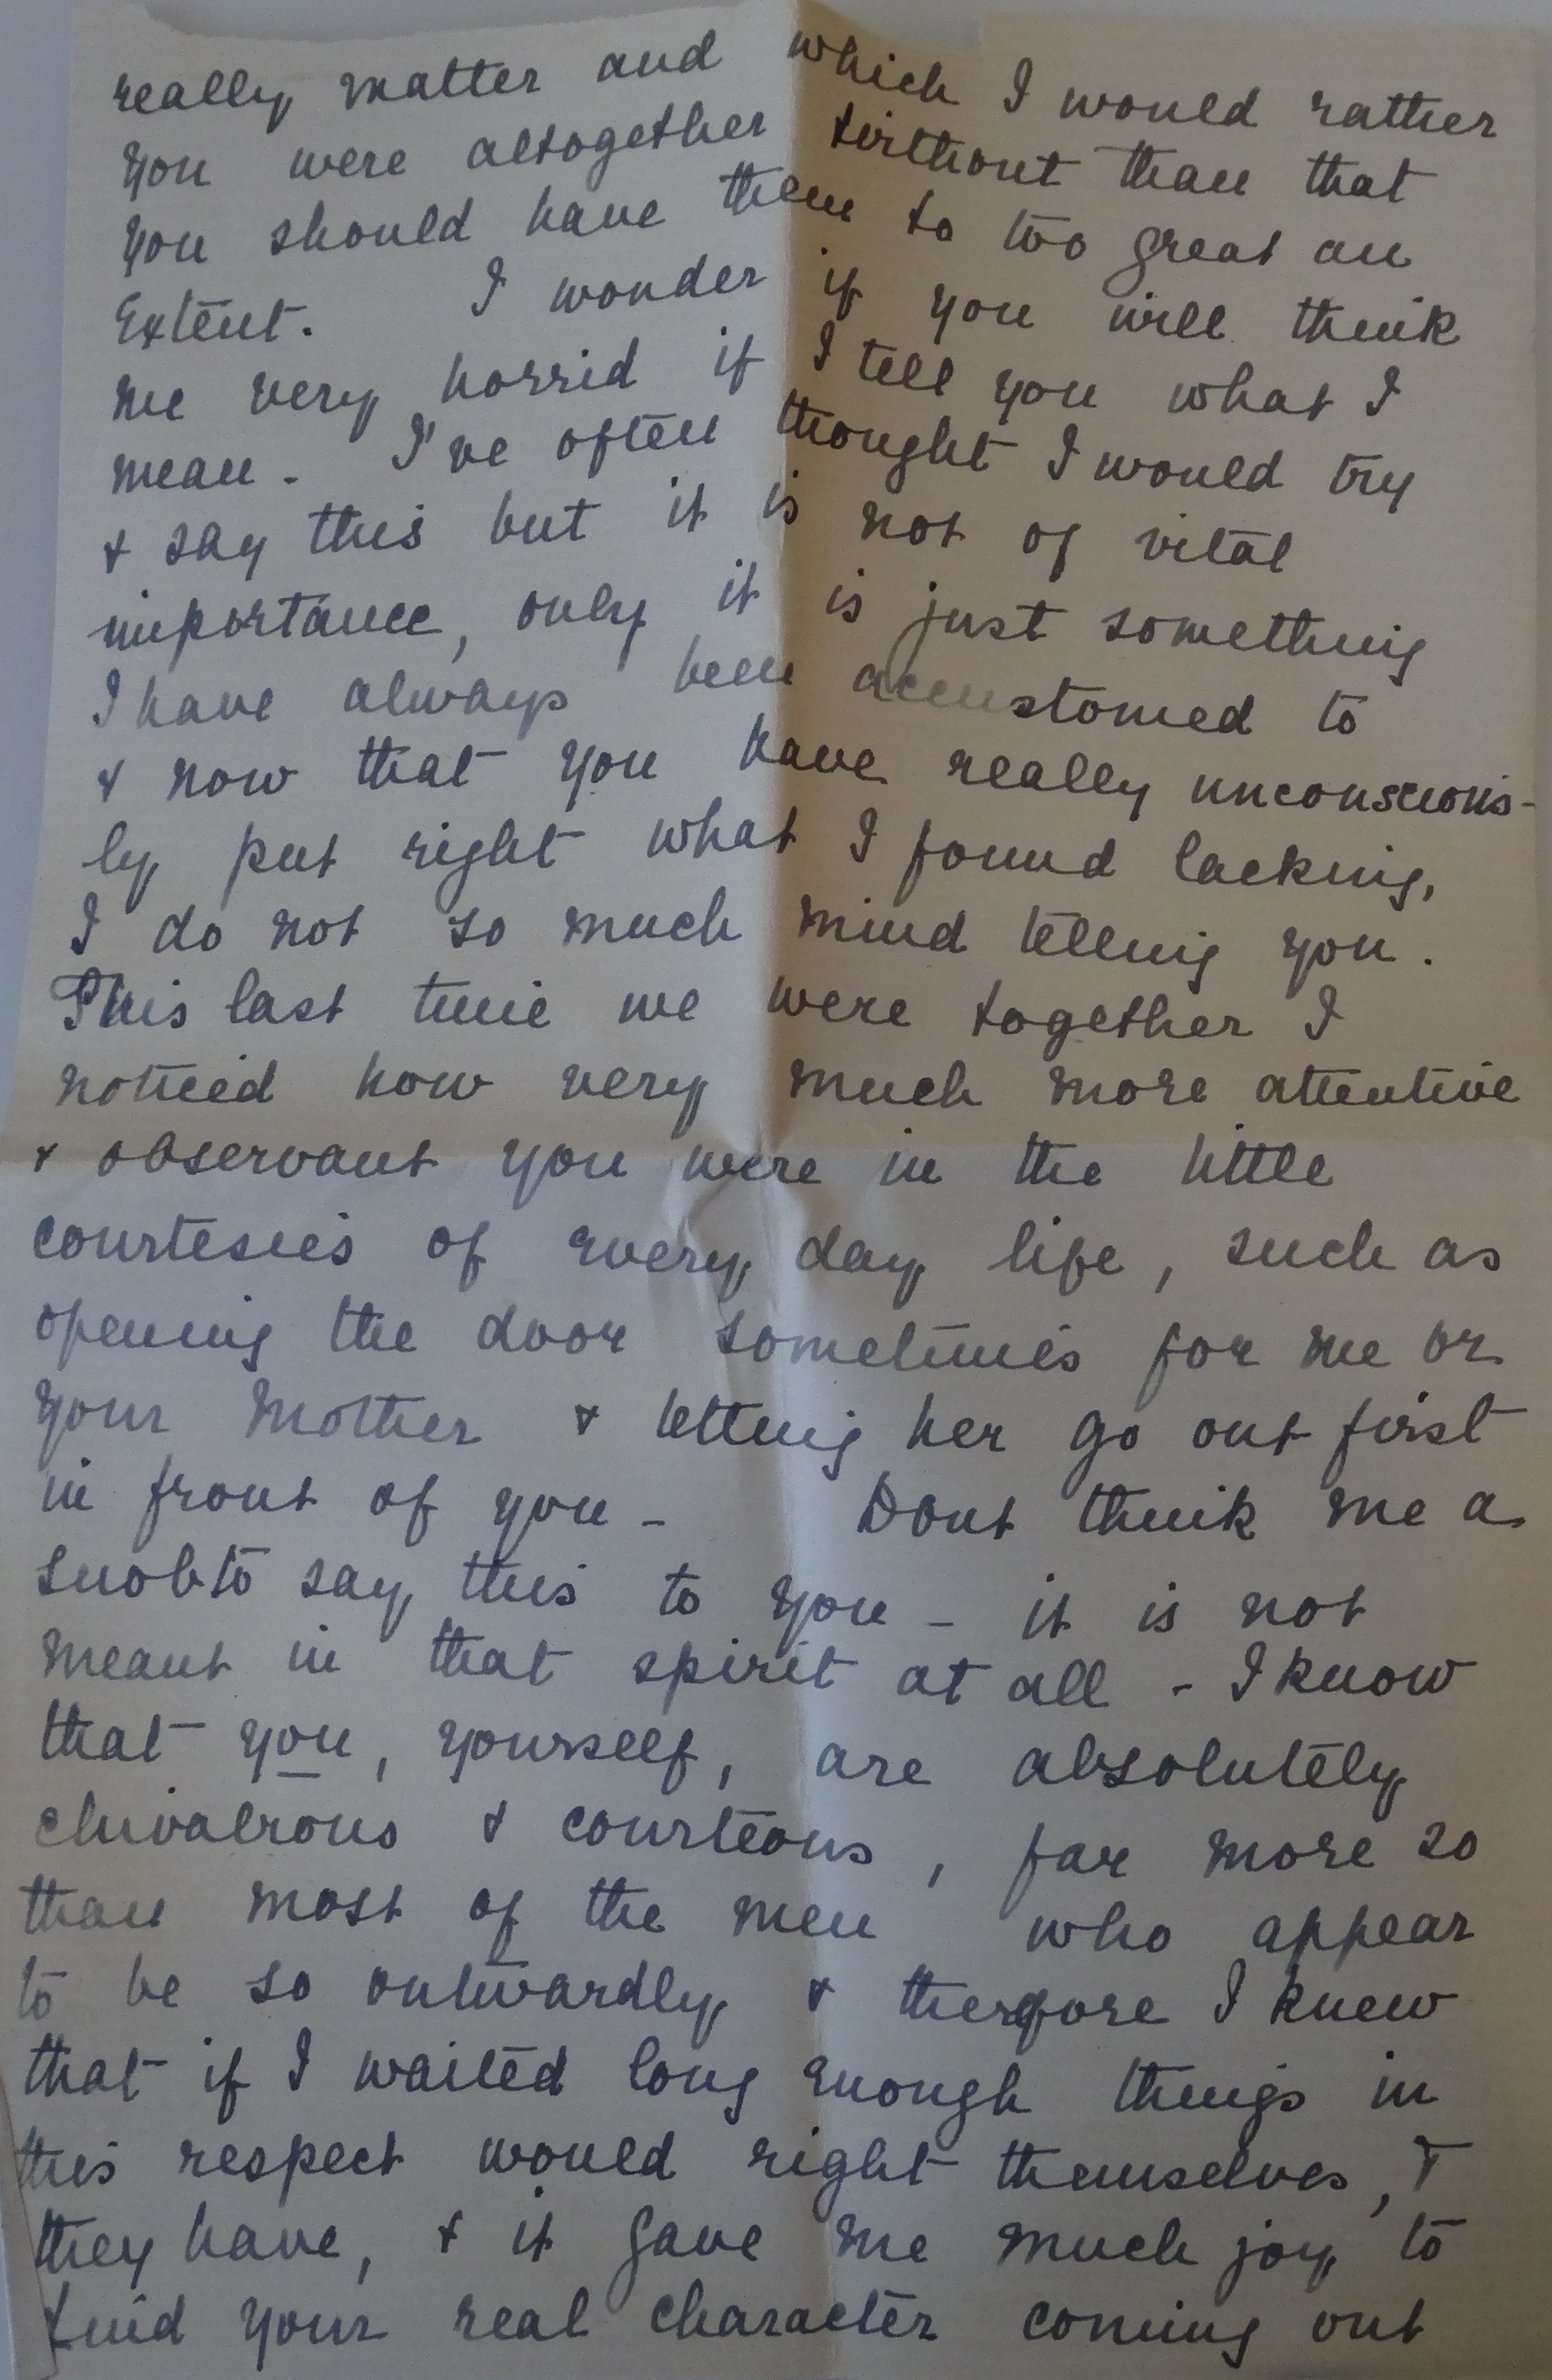 really matter and which I would rather
you were altogether without than that
you should have them to too great an
extent. I wonder if you will think
me very horrid if I tell you what I
mean - I've often thought I would try
& say this but it is not of vital
importance, only it is just something
I have always been accustomed to
& now that you have really unconscious-
ly put right what I found lacking,
I do not so much mind telling you.
This last time we were together I
noticed how very much more attentive
& observant you were in the little
courtesies of every day life, such as
opening the door sometimes for me or
your Mother & letting her go out first
in front of you - Dont think me a
snob to say this to you - it is not
meant in that spirit at all - I know
that you, yourself, are absolutely
chivalrous & courteous, far more so
than most of the men who appear
to be so outwardly & therefore I knew
that if I waited long enough things in
this respect would right themselves, &
they have, & it gave me much joy to
find your real character coming out